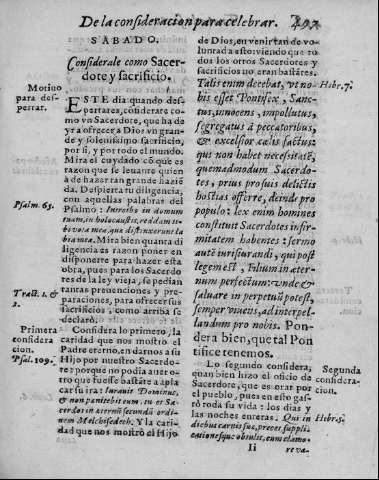 De la consideracion para celebrar.
SABADO.
Considerale como Sacer-
dote y sacrificio.
Motiuo
para des-
pertar.
ESTE dia quando des-
pertares, considerate como
vn Sacerdote, que ha de
yr a ofrecer a Dios vn gran-
de y solenissimo sacrificio,
por si, y por todo el mundo.
Mira el cuydado cõ que es
razon que se leuante quien
a de hazer tan grande haziẽ
da. Despierta tu diligencia,
con aquellas palabras del
Psalm. 65.
Psalmo: Introibo in domum
tuam, in holocaustis, reddam ti-
bi vota mea, que distinxerunt la
bia mea. Mira bien quanta di
ligencia es razon poner en
disponerte para hazer esta
obra, pues para los Sacerdo
tes de la ley vieja, se pedian
Tract. 1. &
2.
tantas preuenciones y pre-
paraciones, para ofrecer sus
sacrificios, como arriba se
declarò.
Primera
considera
cion.
Psal. 109.
Considera lo primero, la
caridad que nos mostro el
Padre eterno, en darnos a su
Hijo por nuestro Sacerdo-
te: porque no podia auer o-
tro que fuesse bastãte a apla
car su ira: Iurauit Dominus,
& non pænitebit eum. tu es Sa-
cerdos in æternũ secundũ ordi-
nem Melchisedech. Y la cari-
dad que nos mostrò el Hijo
de Dios, en venir tan de vo-
luntad a esto: viendo que to
dos los otros Sacerdotes y
sacrificios no eran bastãtes.
Hebr. 7.
Talis enim decebat, vt no-
bis esset Pontifex, Sanc-
tus, innocens, impollutus,
segregatus à peccatoribus,
& excelsior cælis factus:
qui non habet necessitatẽ,
quemadmodum Sacerdo-
tes, prius pro suis delictis
hostias offerre, deinde pro
populo: lex enim homines
constituit Sacerdotes infir-
mitatem habentes: sermo
autẽ iurisiurandi, qui post
legem est, Filium in æter-
num perfectum: vnde &
saluare in perpetuũ potest,
semper viuens, ad interpel-
landum pro nobis. Pon-
dera bien, que tal Pon
tifice tenemos.
Segunda
considera-
cion.
Lo segundo considera,
quan bien hizo el oficio de
Sacerdote, que es orar por
el pueblo, pues en esto gas-
tò toda su vida: los dias y
Hebr. 5.
las noches enteras. Qui in
diebus carnis suæ, preces suppli-
cationesque obtulit, cum clamo-
Ii
re va-